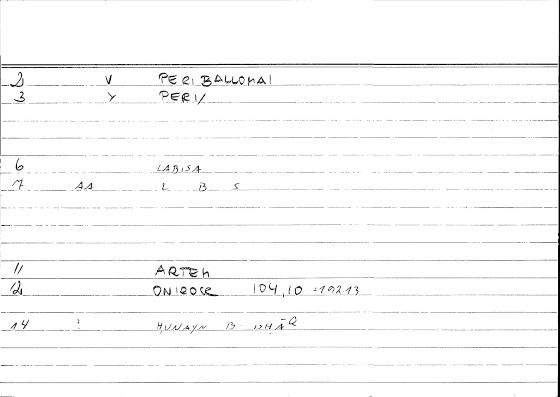 2 V PERIBALLOMAI
3 Y PERI/
6 LABISA
7 AA L B S
11 ARTEM
12 ONIROCR 104,10 =19213
14 ? HUNAYN B